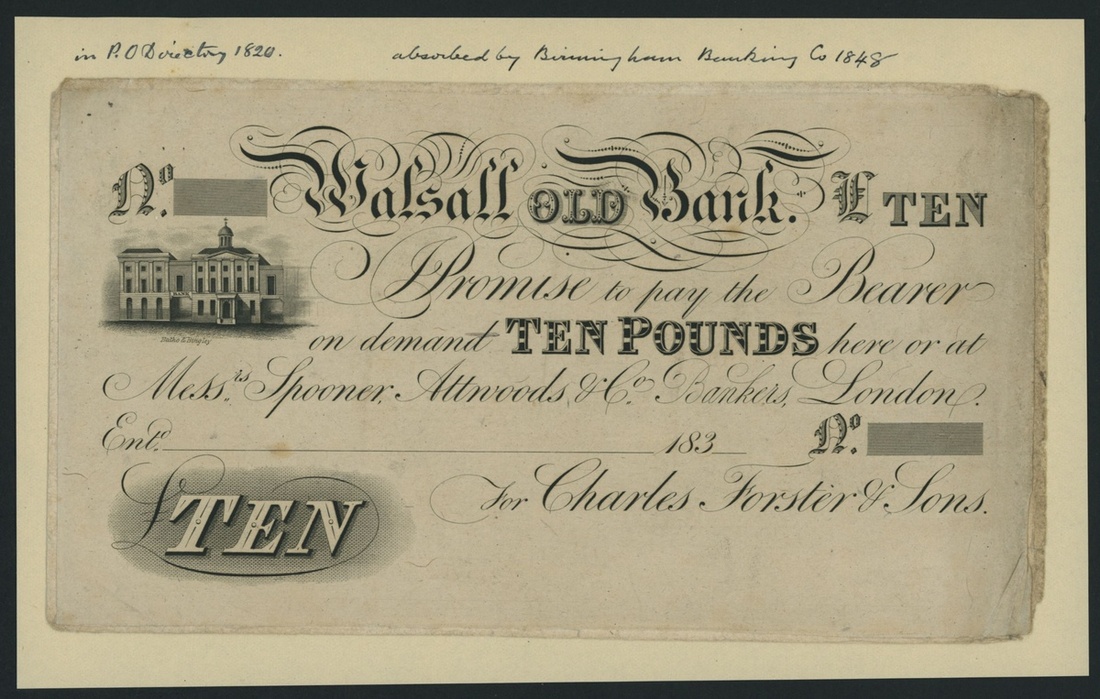 in P.O Directory 1820. absorbed by Birmingham Banking Co 1848
No. Walsall OLD Bank. £ TEN
I Promise to pay the Bearer
on demand TEN POUNDS here or at
Messrs. Spooner, Attwoods, & Co. Bankers, London.
BANK
Entd. 183 No.
For Charles Forster & Sons.
£TEN